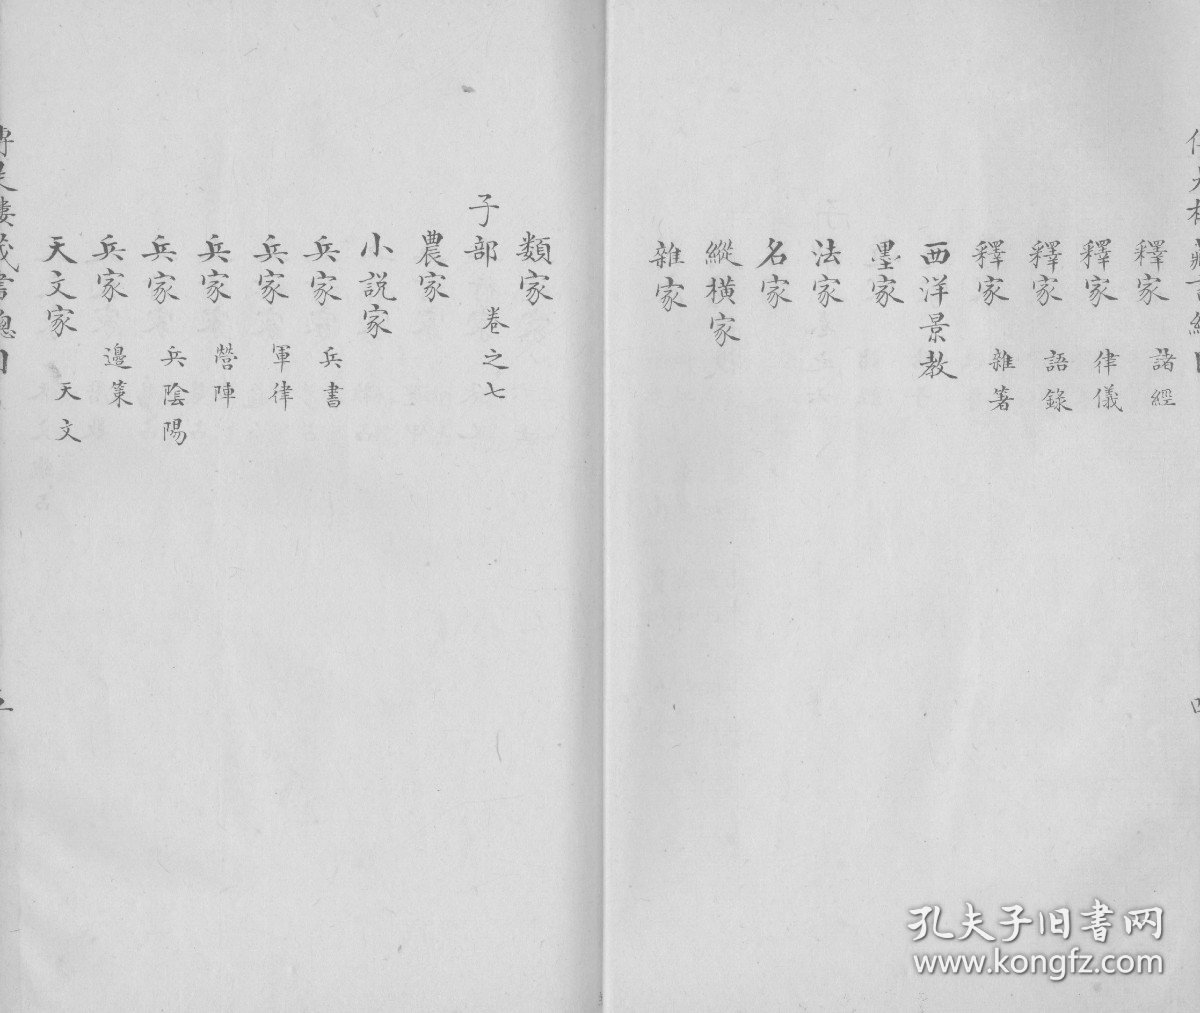 釋家 諸經
釋家 律儀
釋家 語錄
釋家 雜著
西洋景教
墨家
法家
名家
縱橫家
雜家
類家
子部 卷之七
農家
小說家
兵家 兵書
兵家 軍律
兵家 營陣
兵家 兵陰陽
兵家 邊策
天文家 天文
孔夫子旧書网
www.kongfz.com